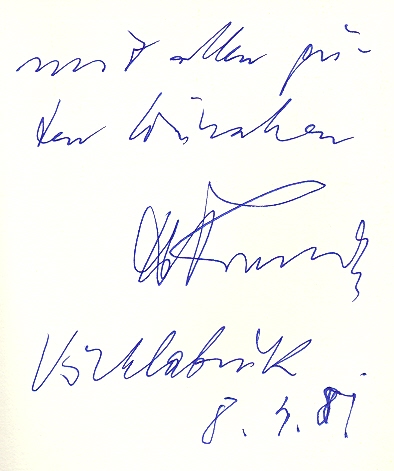 mit allen gu-
ten Wünschen
Vöcklabruck
8. 5. 81.